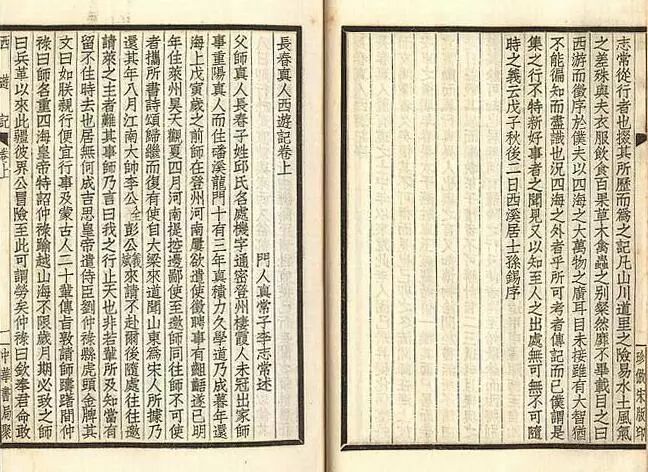 志常從行者也掇其所歷而為之記凡山川道里之險易水土風氣
之差殊與夫衣服飲食百果草木禽蟲之别粲然靡不畢載目之曰
西游而徵序於僕夫以四海之大萬物之廣耳目未接雖有大智猶
不能徧知而盡識也況四海之外者乎所可考者傳記而已僕謂是
集之行不特新好事者之聞見又以知至人之出處無可無不可隨
時之義云戊子秋後二日西溪居士孫錫序
珍倣宋版印
西遊記
卷上
中華書局聚
長春真人西遊記卷上
門人真常子李志常述
父師真人長春子姓邱氏名處機字通密登州棲霞人未冠出家師
事重陽真人而住磻溪龍門十有三年真積力久學道乃成暮年還
海上戊寅歲之前師在登州河南屢欲遣使徵聘事有齟齬遂已明
年住萊州昊天觀夏四月河南提控邊鄙使至邀師同往師不可使
者攜所書詩頌歸繼而復有使自大梁來道聞山東為宋人所據乃
還其年八月江南大帥李公全彭公義斌來請不赴爾後隨處往往邀
請萊之主者難其事師乃言曰我之行止天也非若輩所及知當有
留不住時去也居無何成吉思皇帝遣侍臣劉仲祿縣虎頭金牌其
文曰如朕親行便宜行事及蒙古人二十輩傳旨敦請師躊躇間仲
祿曰師名重四海皇帝特詔仲祿踰越山海不限歲月期必致之師
曰兵革以來此疆彼界公冒險至此可謂勞矣仲祿曰欽奉君命敢